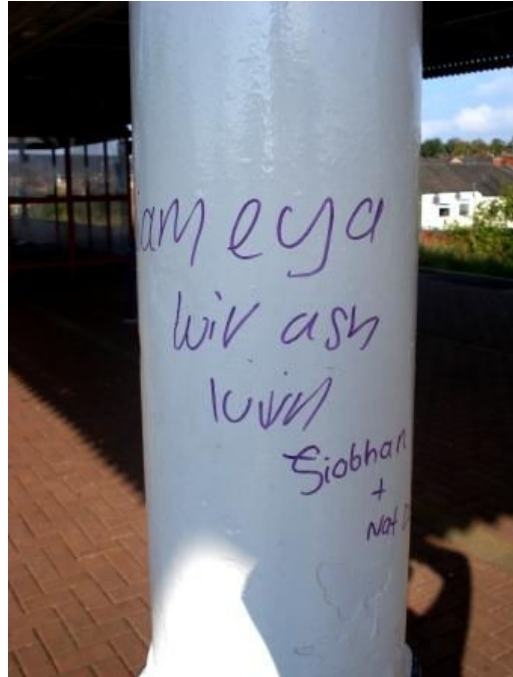 ameya
luv ash
luvn
Siobhan
+
Nat